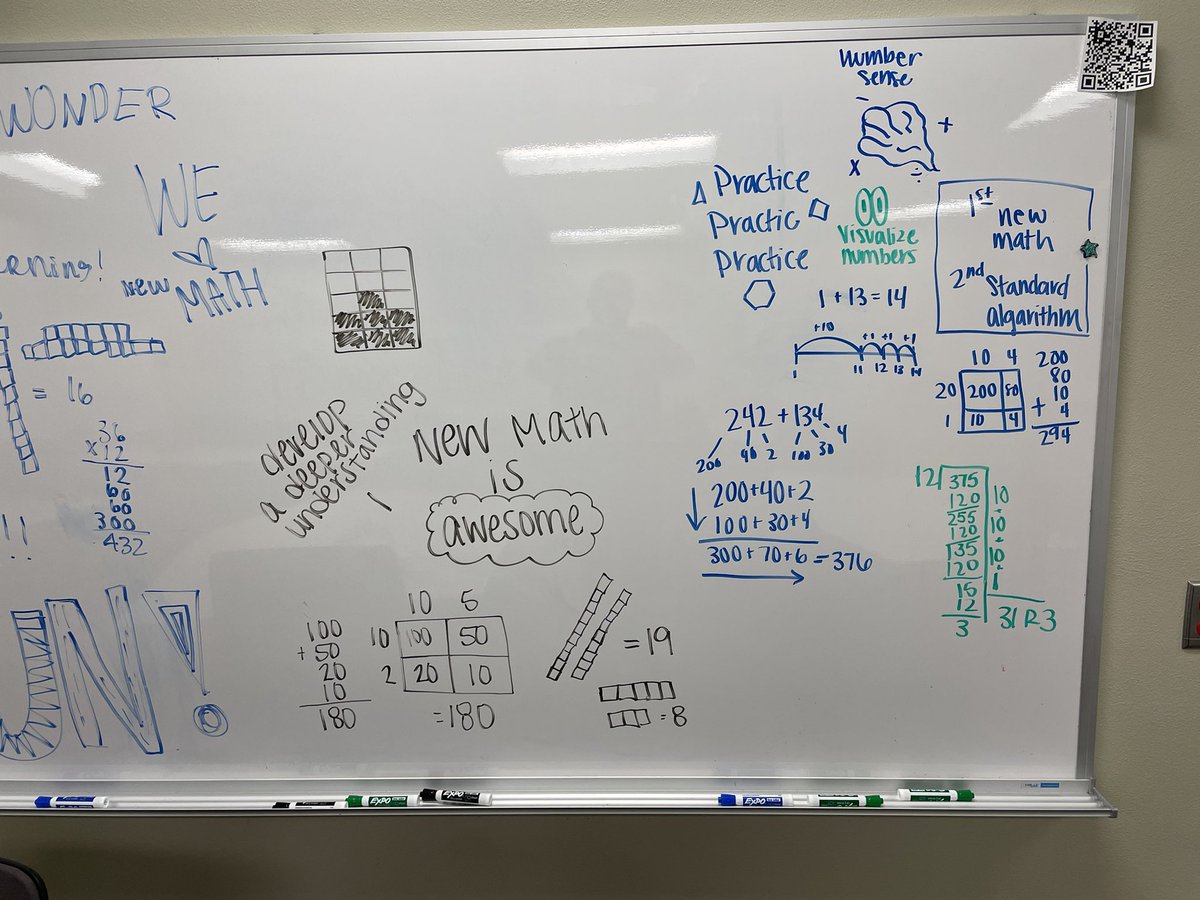 WONDER
WE
NEW MATH
= 16
36
x12
12
60
60
300
432
!!
UN!
develop
a deeper
understanding
New Math
is
awesome
100
+ 50
20
10
180
10 5
10 100 50
2 20 10
=180
= 19
= 8
number
sense
- + x ÷
Practice
Practic
Practice
Visualize
numbers
1st
new
math
2nd Standard
algorithm
1 + 13 = 14
+10 +1 +1 +1
1 11 12 13 14
242 + 134
200 40 2 100 30 4
200+40+2
100+30+4
300+70+6 = 376
10 4
20 200 80
1 10 4
200
80
10
+ 4
294
12 375
120 10
255
120 10
135
120 10
15 1
12
3 31 R3
EXPO
EXPO